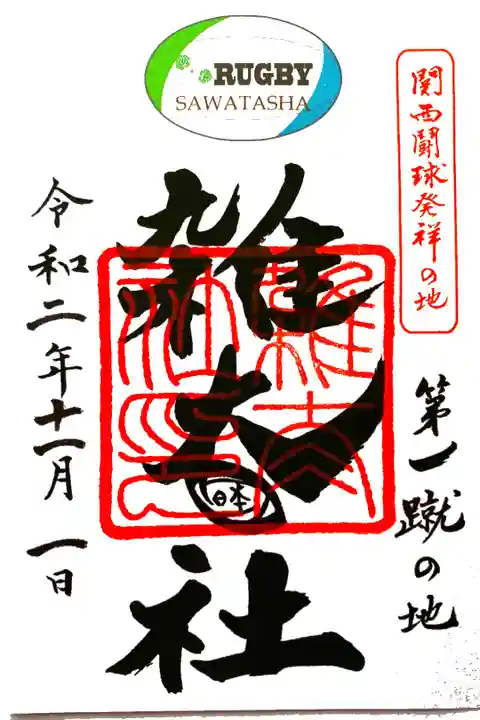 RUGBY
SAWATASHA
関西闘球発祥の地
第一蹴の地
雑太社
日本
雑太
社印
令和二年十一月 一日